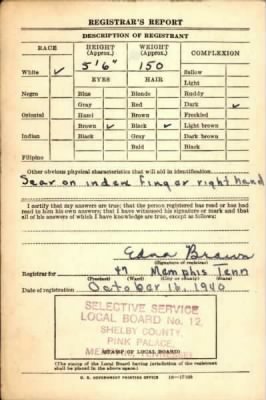 REGISTRAR'S REPORT
DESCRIPTION OF REGISTRANT
RACE HEIGHT (Approx.) WEIGHT (Approx.) COMPLEXION
White ✓ 5'6" 150 Sallow
EYES HAIR Light
Negro Blue Blonde Ruddy
Gray Red Dark ✓
Oriental Hazel Brown Freckled
Brown ✓ Black ✓ Light brown
Indian Black Gray Dark brown
Bald Black
Filipino
Other obvious physical characteristics that will aid in identification
Scar on index finger right hand
I certify that my answers are true; that the person registered has read or has had
read to him his own answers; that I have witnessed his signature or mark and that
all of his answers of which I have knowledge are true, except as follows:
Edna Brown
(Signature of registrar)
Registrar for 47 Memphis Tenn
(Precinct) (Ward) (City or county) (State)
Date of registration October 16, 1940
SELECTIVE SERVICE
LOCAL BOARD No. 12,
SHELBY COUNTY,
PINK PALACE,
(STAMP OF LOCAL BOARD)
(The stamp of the Local Board having jurisdiction of the registrant
shall be placed in the above space.)
U. S. GOVERNMENT PRINTING OFFICE